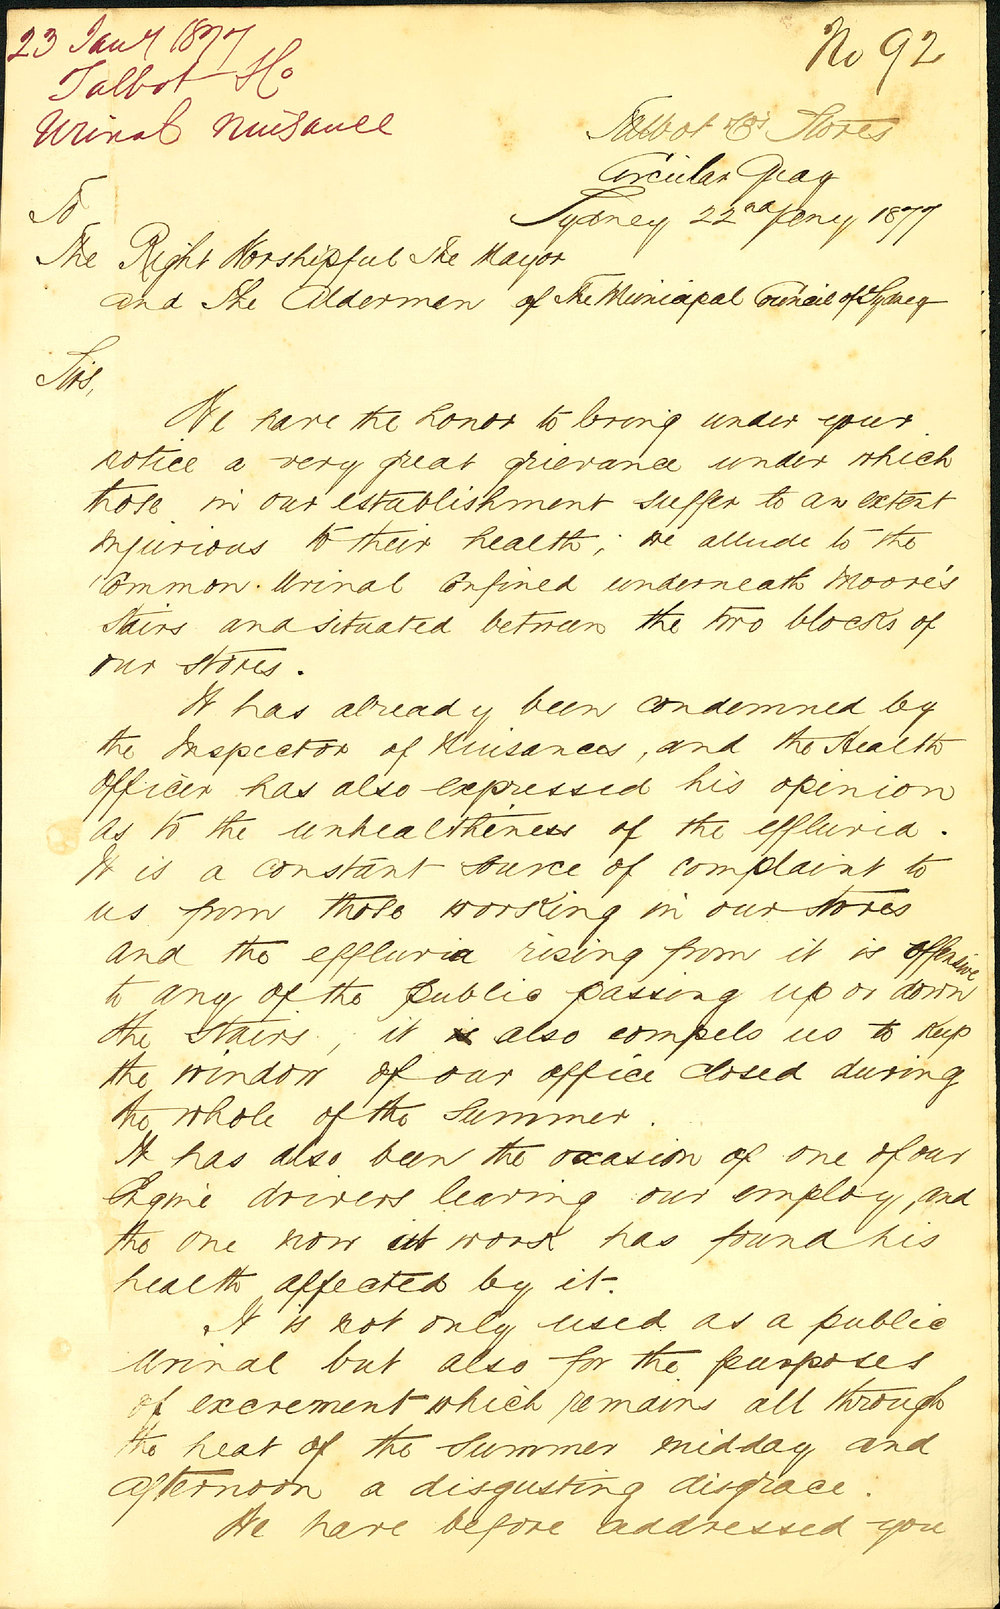 23 Jany 1877
Talbot & Co
Urinal Nuisance
No 92
Talbot & Co's Stores
Circular Quay
Sydney 22nd Jany 1877
To
The Right Worshipful the Mayor
and the Aldermen of the Municipal Council of Sydney
Sirs,
We have the honor to bring under your
notice a very great grievance under which
those in our establishment suffer to an extent
injurious to their health; we allude to the
common Urinal confined underneath Moore's
Stairs and situated between the two blocks of
our stores.
It has already been condemned by
the Inspector of Nuisances, and the Health
Officer has also expressed his opinion
as to the unhealthiness of the effluvia.
It is a constant source of complaint to
us from those working in our stores
and the effluvia rising from it is offensive
to any of the public passing up or down
the stairs, it also compels us to keep
the window of our office closed during
the whole of the Summer.
It has also been the occasion of one of our
Engine drivers leaving our employ, and
the one now at work has found his
health affected by it.
It is not only used as a public
Urinal but also for the purposes
of excrement which remains all through
the heat of the Summer midday and
afternoon a disgusting disgrace.
We have before addressed you